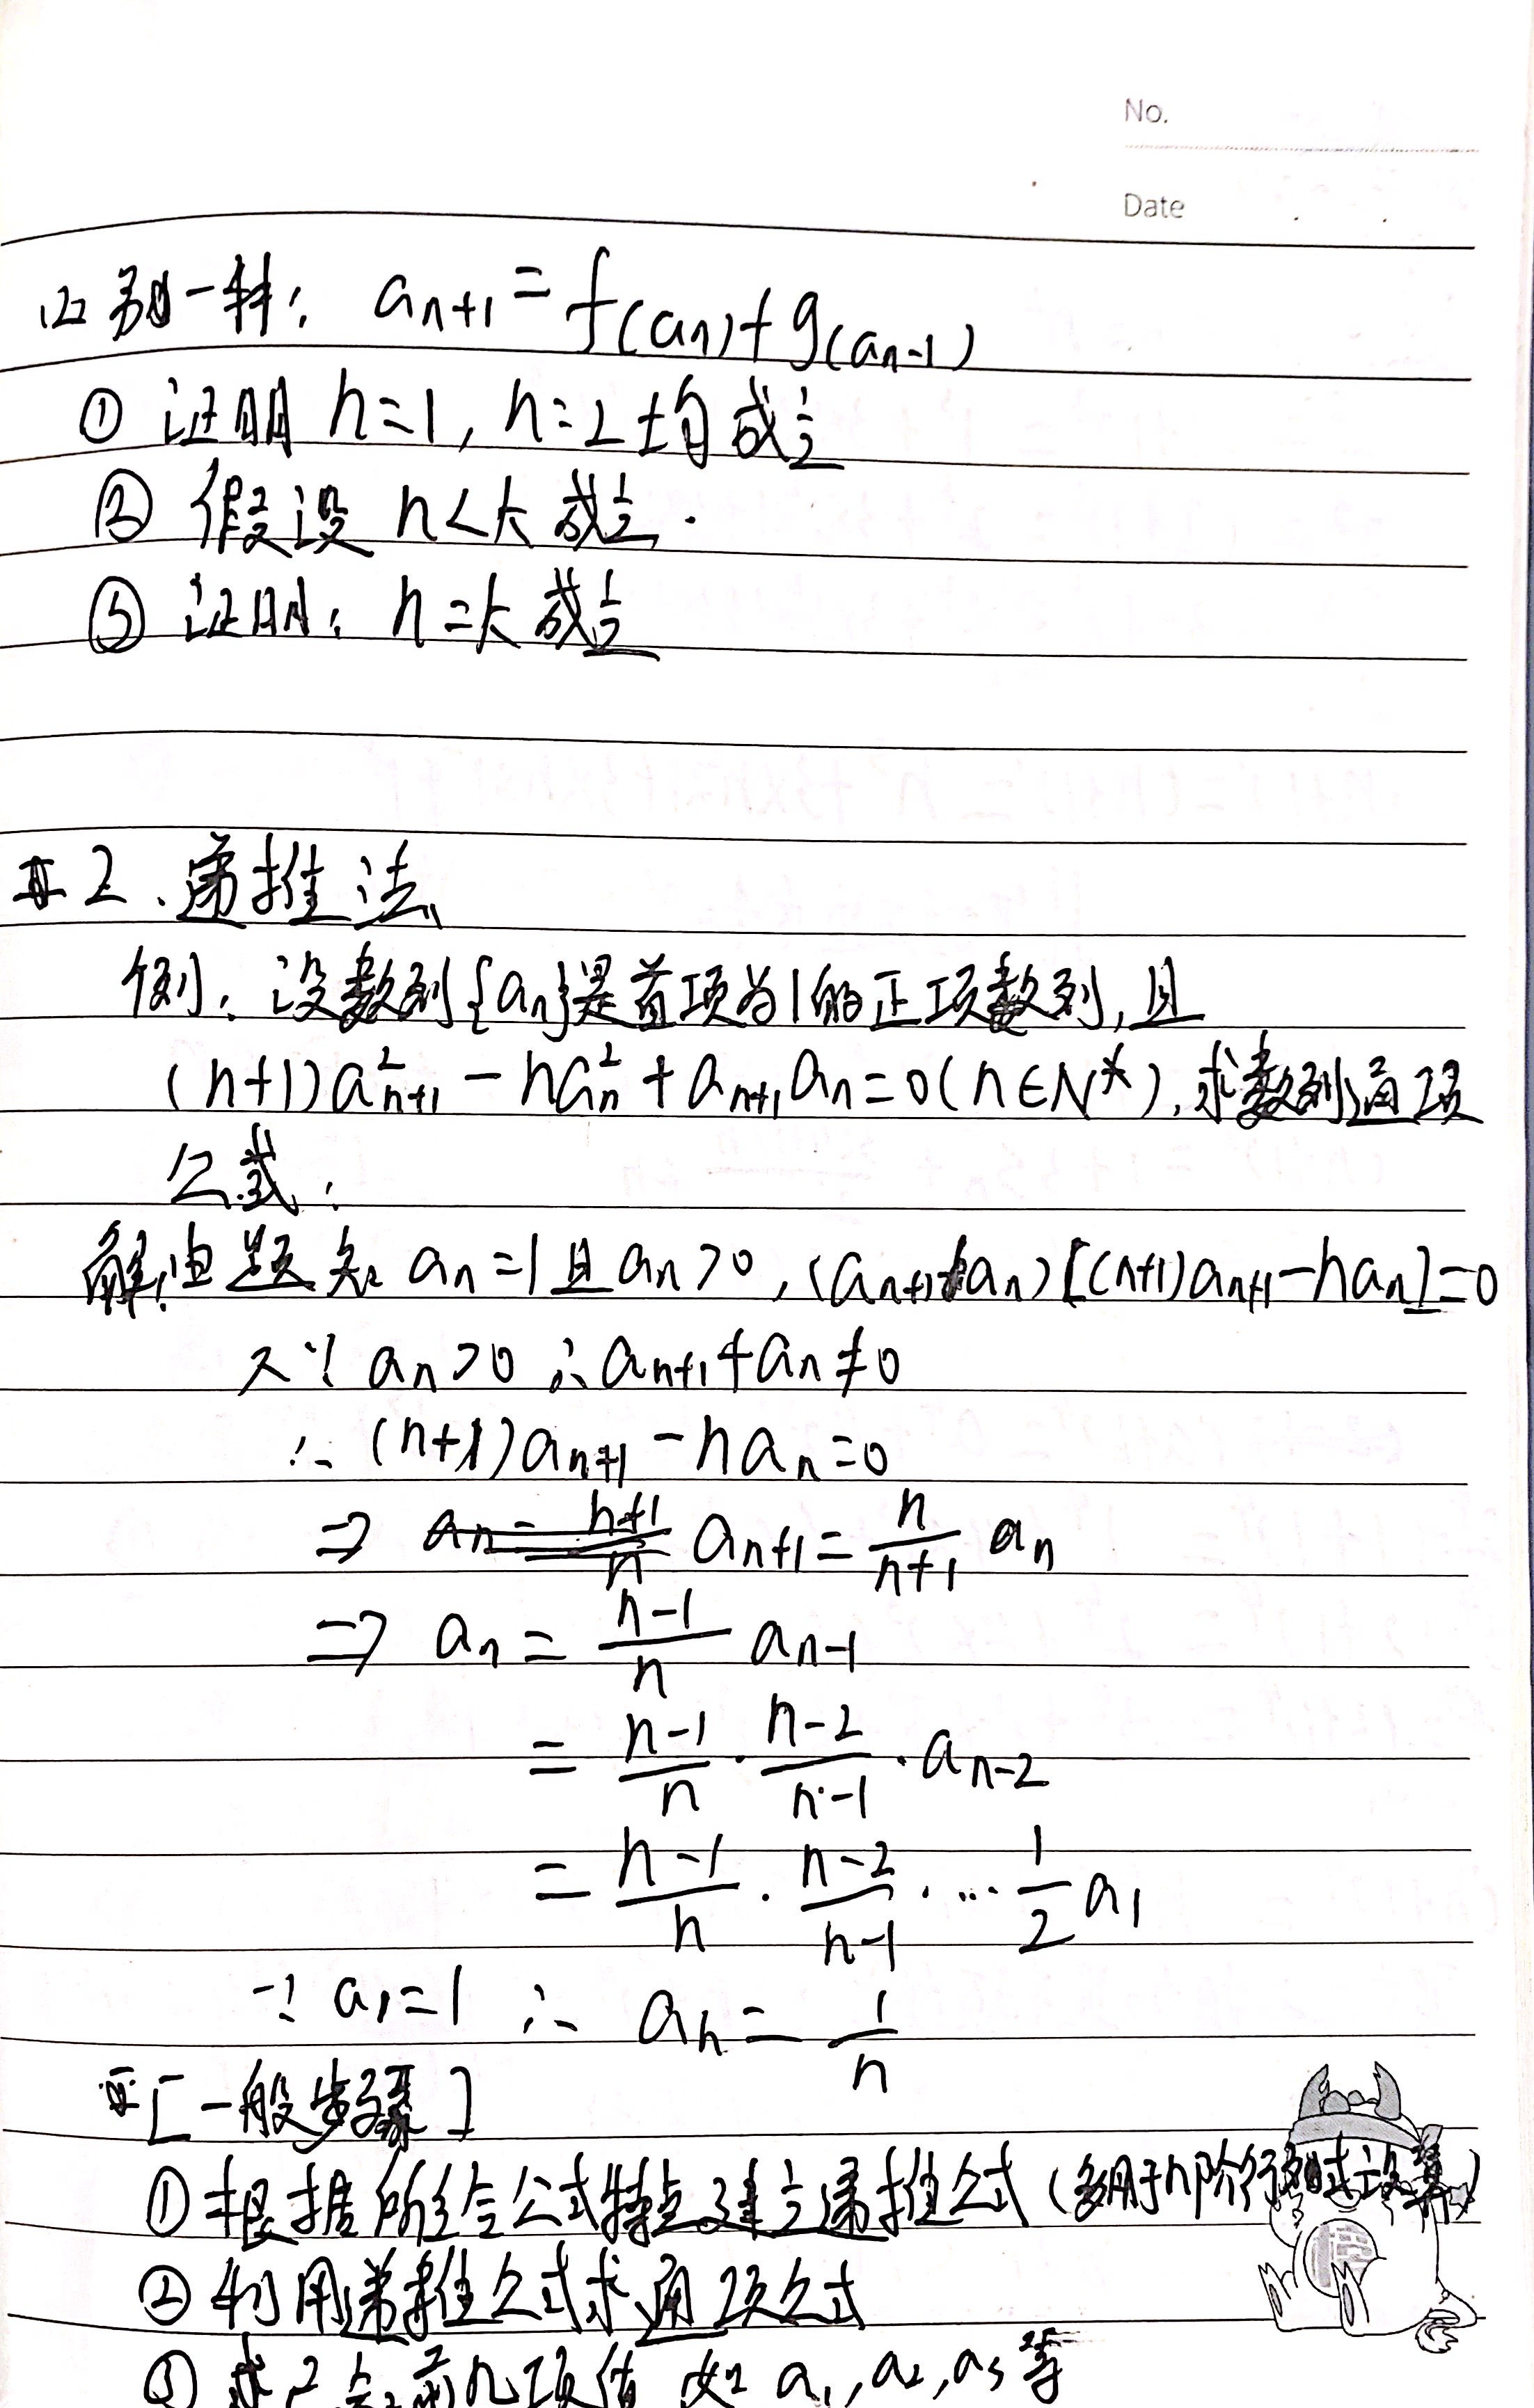 No.
Date
(2) 别一种: a_{n+1} = f(a_n) + g(a_{n-1})
① 证明 n=1, n=2 均成立
② 假设 n<k 成立.
③ 证明: n=k 成立
2. 递推法
例: 设数列{a_n}是首项为1的正项数列, 且
(n+1)a²_{n+1} - na²_n + a_{n+1}a_n = 0 (n∈N*), 求数列通项
公式.
解: 由题知 a_n=1 且 a_n>0, (a_{n+1}+a_n)[(n+1)a_{n+1}-na_n]=0
又∵ a_n>0 ∴ a_{n+1}+a_n≠0
∴ (n+1)a_{n+1} - na_n = 0
⇒ a_{n+1} = \frac{n}{n+1} a_n
⇒ a_n = \frac{n-1}{n} a_{n-1}
= \frac{n-1}{n} · \frac{n-2}{n-1} · a_{n-2}
= \frac{n-1}{n} · \frac{n-2}{n-1} · … \frac{1}{2} a_1
∵ a_1=1 ∴ a_n = \frac{1}{n}
[一般步骤]
① 根据所给公式特点建立递推公式 (多用于n阶行列式计算)
② 利用递推公式求通项公式
③ 求出前几项值 如 a_1, a_2, a_3 等